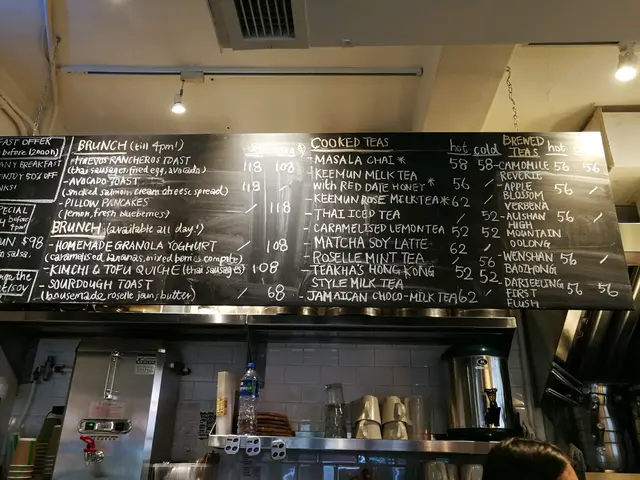 FAST OFFER
before 12noon)
ANY BREAKFAST
ENJOY 50% OFF
NKS!
SPECIAL
before
4pm)
$98
salsa.
BRUNCH (till 4pm!)
HUEVOS RANCHEROS TOAST 118 108
(thai sausages, fried egg, avocado)
- AVOCADO TOAST 119 /
(smoked salmon, cream cheese, spread)
- PILLOW PANCAKES / 118
(lemon, fresh blueberries)
BRUNCH (available all day!)
- HOMEMADE GRANOLA YOGHURT / 108
(caramelised bananas, mixed berries compote)
- KIMCHI & TOFU QUICHE (thai sausages) 108
- SOURDOUGH TOAST / 68
(housemade roselle jam, butter)
COOKED TEAS hot cold
- MASALA CHAI * 58 58
- KEEMUN MILK TEA
with RED DATE HONEY * 56 /
- KEEMUN ROSE MILK TEA * 62 /
- THAI ICED TEA / 52
- CARAMELISED LEMON TEA 52 52
- MATCHA SOY LATTE 62 /
- ROSELLE MINT TEA / 52
- TEAKHA'S HONG KONG
STYLE MILK TEA 52 52
- JAMAICAN CHOCO-MILK TEA 62 /
BREWED
TEAS hot
- CAMOMILE 56 56
REVERIE
- APPLE 56 /
BLOSSOM
VERBENA
- ALISHAN 56 /
HIGH
MOUNTAIN
OOLONG
- WENSHAN 56 /
BAOZHONG
- DARJEELING 56 56
FIRST
FLUSH